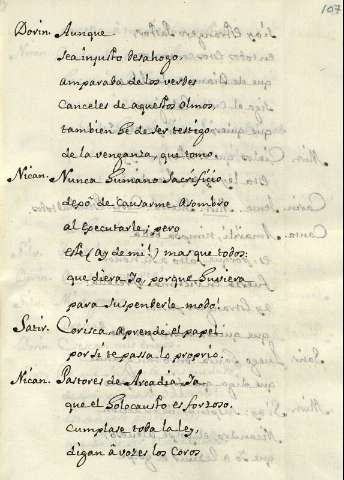 107
Dorin. Aunque
sea injusto desahogo
amparada de los verdes
Canceles de aquestos olmos,
tambien hé de ser testigo
de la venganza, que tomo.
Nican. Nunca humano Sacrificio
dexó de Causarme Asombro
al executarle; pero
este (ay de mi!) mas que todos:
que diera Yo, porque huviera
para suspenderle modo!
Satir. Corisca, aprende el papel
por si te passa lo proprio.
Nican. Pastores de Arcadia, Ya
que el Holocausto es forzoso,
cumplase toda la ley,
digan à vozes los Coros